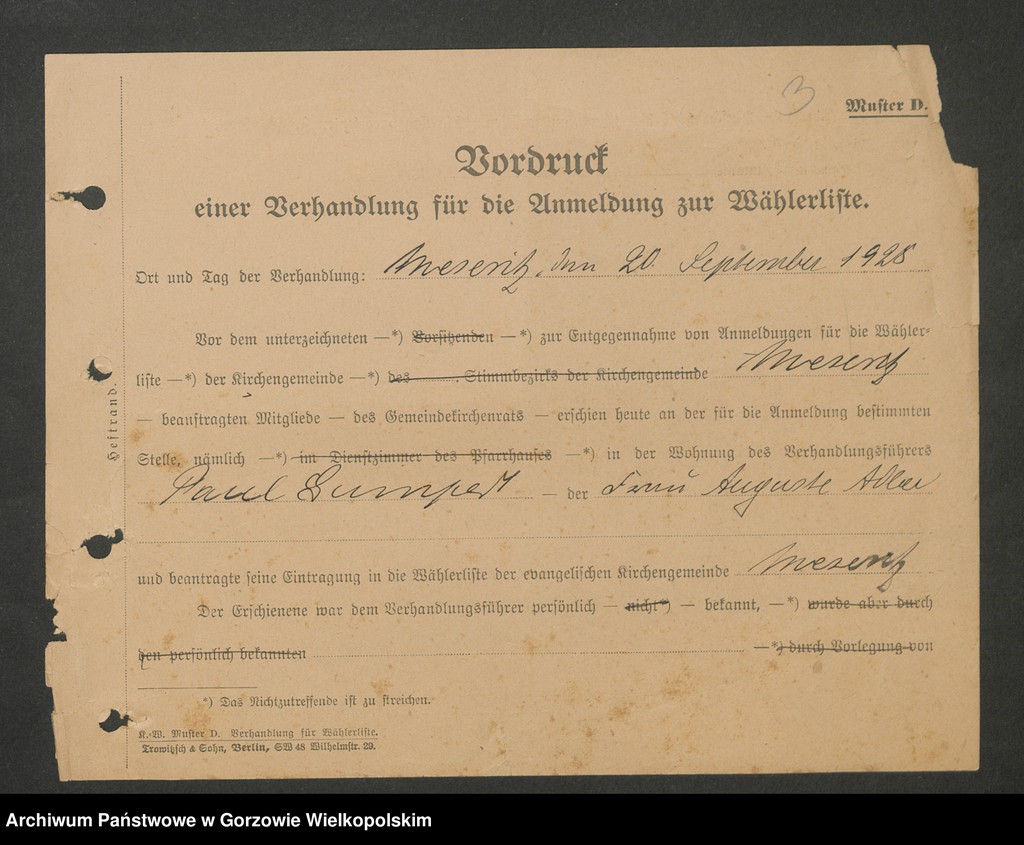 3
Muster D.
Vordruck
einer Verhandlung für die Anmeldung zur Wählerliste.
Ort und Tag der Verhandlung: Meseritz, den 20. September 1928
Vor dem unterzeichneten —*) Vorsitzenden —*) zur Entgegennahme von Anmeldungen für die Wähler-
liste —*) der Kirchengemeinde —*) des ........ Stimmbezirks der Kirchengemeinde Meseritz
— beauftragten Mitgliede — des Gemeindekirchenrats — erschien heute an der für die Anmeldung bestimmten
Stelle, nämlich —*) im Dienstzimmer des Pfarrhauses —*) in der Wohnung des Verhandlungsführers
Paul — der Frau Auguste
und beantragte seine Eintragung in die Wählerliste der evangelischen Kirchengemeinde Meseritz
Der Erschienene war dem Verhandlungsführer persönlich — nicht*) — bekannt, —*) wurde aber durch
den persönlich bekannten —*) durch Vorlegung von
*) Das Nichtzutreffende ist zu streichen.
K.-W. Muster D. Verhandlung für Wählerliste.
Trowitzsch & Sohn, Berlin, SW 48 Wilhelmstr. 29.
Heftrand.
Archiwum Państwowe w Gorzowie Wielkopolskim